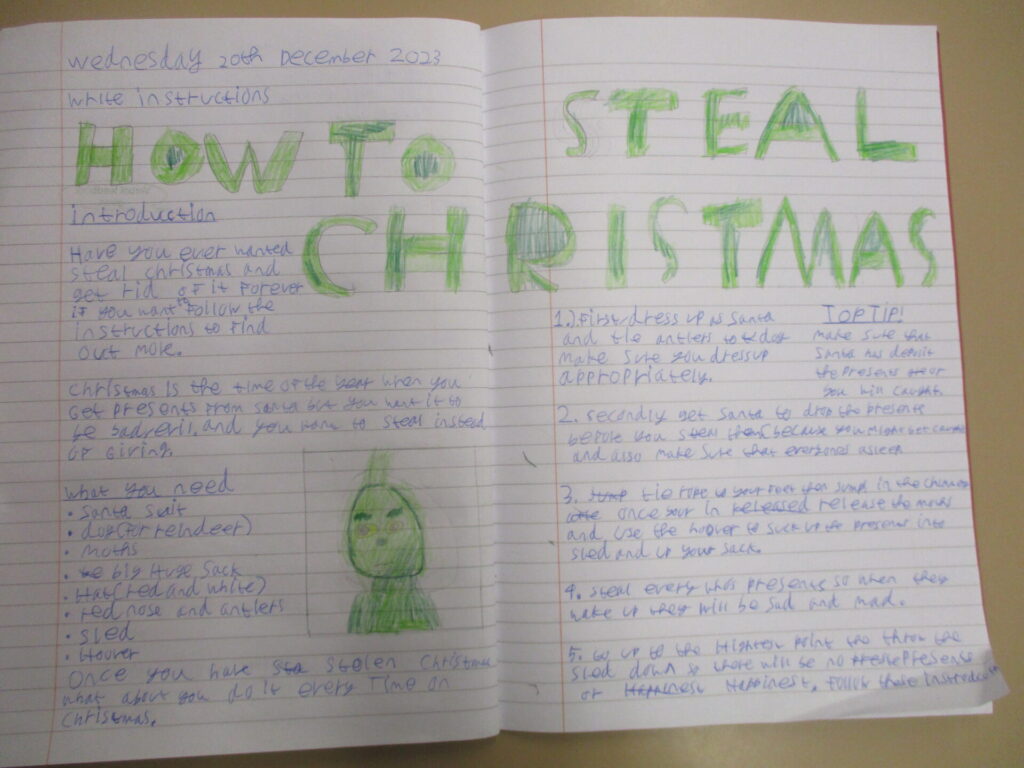 Wednesday 20th December 2023
Write instructions
HOW TO
STEAL
CHRISTMAS
introduction
Have you ever wanted
steal christmas and
get rid of it forever
if you want to follow the
instructions to find
out more.
christmas is the time of the year when you
get presents from santa but you want it to
be bad/evil, and you want to steal instead
of giving.
what you need
• santa suit
• dog (for reindeer)
• moths
• big Huge sack
• Hat (red and white)
• red nose and antlers
• sled
• Hover
Once you have stolen christmas
what about you do it every Time on
christmas.
1.) First dress up as santa
and tie antlers to dog
make sure you dress up
appropriately.
TOP TIP!
make sure that
santa has
the presents or
you will caught.
2. secondly get santa to drop the presents
before you steal them because you might get
and also make sure that everyones asleep
3. tie rope to your foot then jump in the
once your in release the moths
and use the hoover to suck up the presents into
sled and in your sack.
4. steal every whos presents so when they
wake up they will be sad and mad.
5. Go up to the point to throw the
sled down so there will be no presents
or Happinest. Follow these